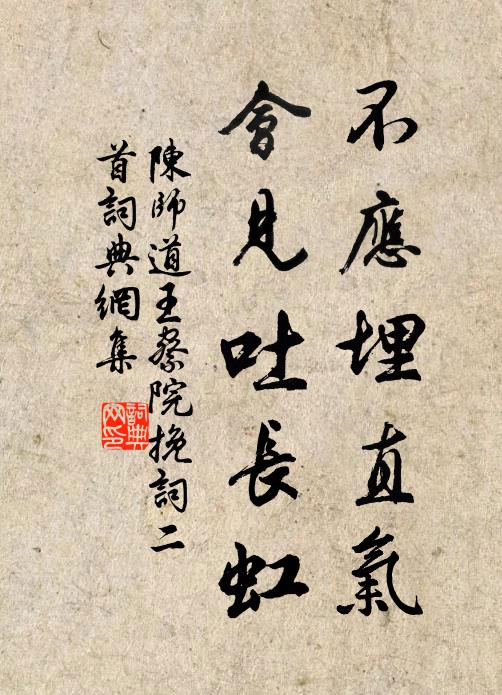 不應埋直氣
會見吐長虹
陳師道王察院挽詞二
首詞典網集
詞典网印